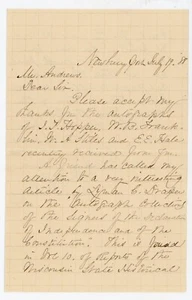 Newbury Oct. July 19. 88
Mr. Andrews.
Dear Sir.
Please accept my
thanks for the autographs
of I. T. Hopper, W. B. Frank-
lin, W. A. Stiles and E. E. Hale
recently received from you.
A friend has called my
attention to a very interesting
article by Lyman C. Draper
on the "Autograph Collections
of the Signers of the Declaration
of Independence and of the
Constitution". This is found
in Vol. 10. of Reports of the
Wisconsin State Historical